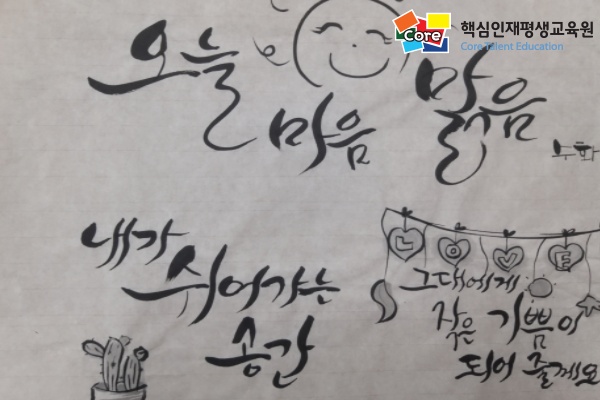 Core
핵심인재평생교육원
Core Talent Education
오늘
마음
맑음
내가
쉬어가는
공간
LOVE
그대에게
작은 기쁨이
되어 줄게요